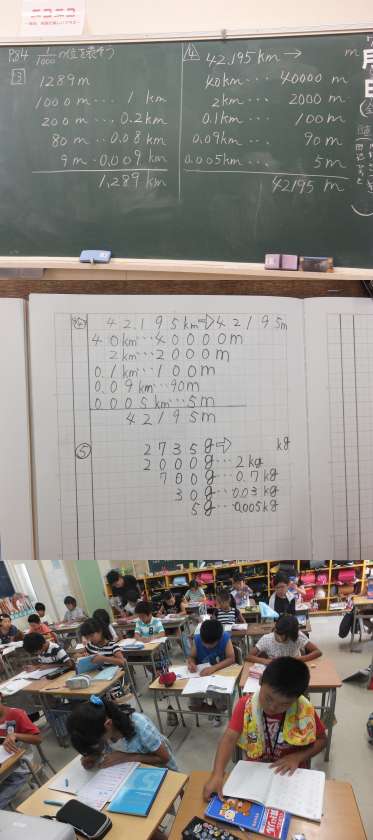 P.84 1/1000の位を表そう
③
1289m
1000m… 1 km
200m… 0.2km
80m… 0.08km
9m…0.009km
1.289 km
④ 42.195km→ m
40km… 40000 m
2km… 2000 m
0.1km… 100m
0.09km… 90m
0.005km… 5m
42195 m
④ 42.195km⇨42195m
40km…40000m
2km…2000m
0.1km…100m
0.09km…90m
0.005km…5m
42195m
⑤ 2735g⇨ kg
2000g…2kg
700g…0.7kg
30g…0.03kg
5g…0.005kg